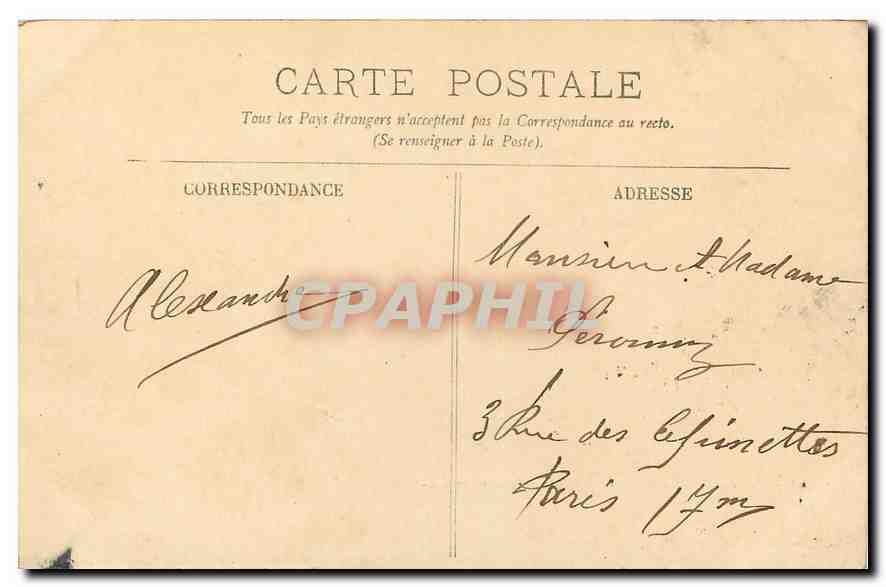 CARTE POSTALE
Tous les Pays étrangers n'acceptent pas la Correspondance au recto.
(Se renseigner à la Poste).
CORRESPONDANCE
ADRESSE
Alexandre
CPAPHIL
Monsieur et Madame
3 Rue des
Paris 17m